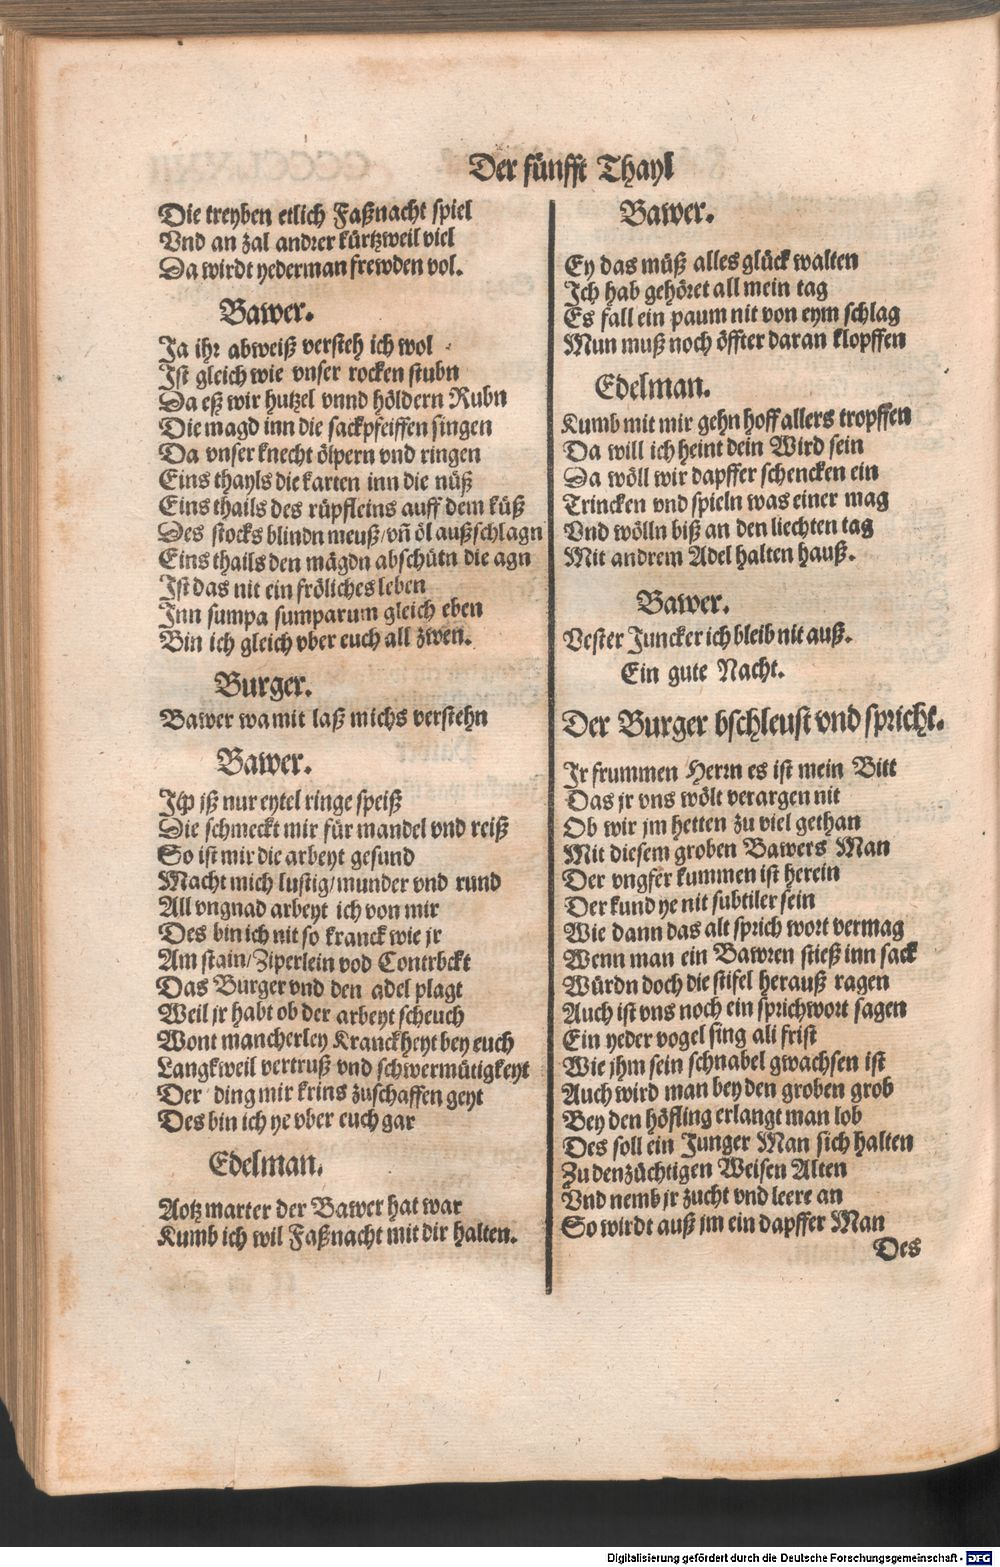 Der fünfft Thayl
Die treyben etlich Faßnacht spiel
Vnd an zal andrer kürtzweil viel
Da wirdt yederman frewden vol.
Bawer.
Ja ihr abweiß versteh ich wol
Ist gleich wie vnser rocken stubn
Da eß wir hutzel vnnd höldern Rubn
Die magd inn die sackpfeiffen singen
Da vnser knecht ölpern vnd ringen
Eins thayls die karten inn die nüß
Eins thails des rüpfleins auff dem küß
Des stocks blindn meuß/vñ öl außschlagn
Eins thails den mägdn abschütn die agn
Ist das nit ein fröliches leben
Inn sumpa sumparum gleich eben
Bin ich gleich vber euch all zwen.
Burger.
Bawer wa mit laß michs verstehn
Bawer.
Ich iß nur eytel ringe speiß
Die schmeckt mir für mandel vnd reiß
So ist mir die arbeyt gesund
Macht mich lustig/munder vnd rund
All vngnad arbeyt ich von mir
Des bin ich nit so kranck wie jr
Am stain/Ziperlein vod Contrbckt
Das Burger vnd den adel plagt
Weil jr habt ob der arbeyt scheuch
Wont mancherley Kranckheyt bey euch
Langkweil vertruß vnd schwermütigkeyt
Der ding mir krins zuschaffen geyt
Des bin ich ye vber euch gar
Edelman.
Aotz marter der Bawer hat war
Kumb ich wil Faßnacht mit dir halten.
Bawer.
Ey das müß alles glück walten
Ich hab gehöret all mein tag
Es fall ein paum nit von eym schlag
Mun muß noch öffter daran klopffen
Edelman.
Kumb mit mir gehn hoff allers tropffen
Da will ich heint dein Wird sein
Da wöll wir dapffer schencken ein
Trincken vnd spieln was einer mag
Vnd wölln biß an den liechten tag
Mit andrem Adel halten hauß.
Bawer.
Vester Juncker ich bleib nit auß.
Ein gute Nacht.
Der Burger bschleust vnd spricht.
Jr frummen Herrn es ist mein Bitt
Das jr vns wölt verargen nit
Ob wir jm hetten zu viel gethan
Mit diesem groben Bawers Man
Der vngfer kummen ist herein
Der kund ye nit subtiler sein
Wie dann das alt sprich wort vermag
Wenn man ein Bawren stieß inn sack
Würdn doch die stifel herauß ragen
Auch ist vns noch ein sprichwort sagen
Ein yeder vogel sing ali frist
Wie jhm sein schnabel gwachsen ist
Auch wird man bey den groben grob
Bey den höfling erlangt man lob
Des soll ein Junger Man sich halten
Zu den züchtigen Weisen Alten
Vnd nemb jr zucht vnd leere an
So wirdt auß jm ein dapffer Man
Des
Digitalisierung gefördert durch die Deutsche Forschungsgemeinschaft - DFG